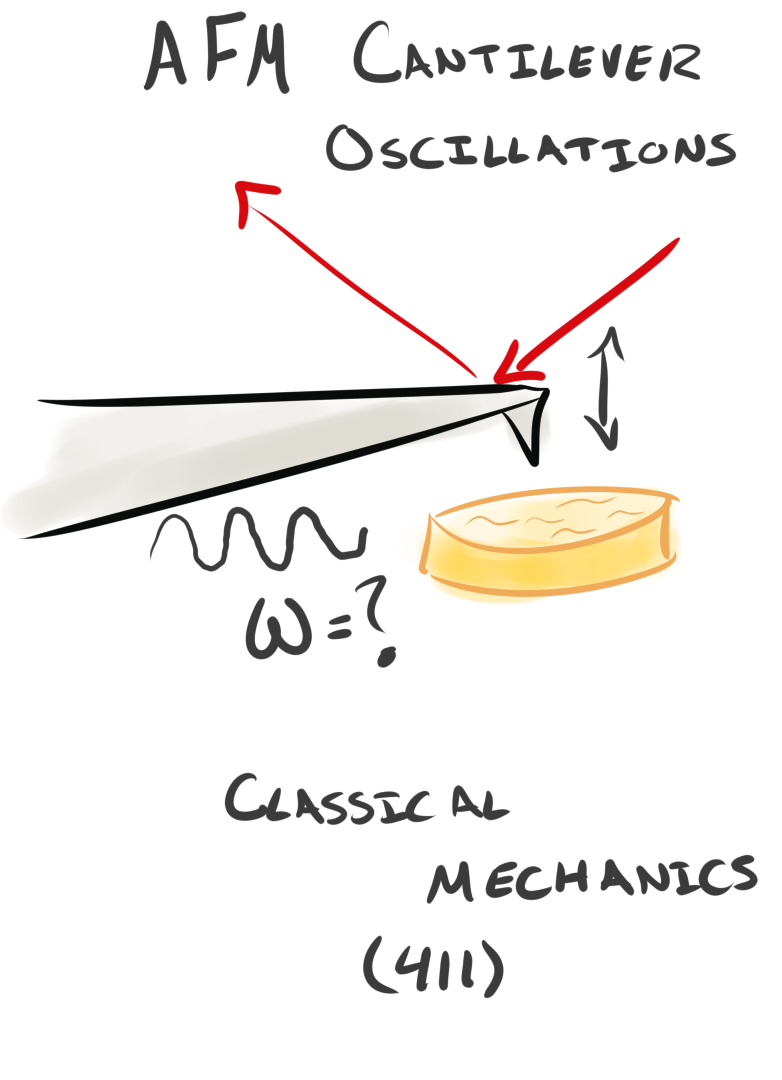 AFM CANTILEVER
OSCILLATIONS
ω=?
CLASSICAL
MECHANICS
(411)